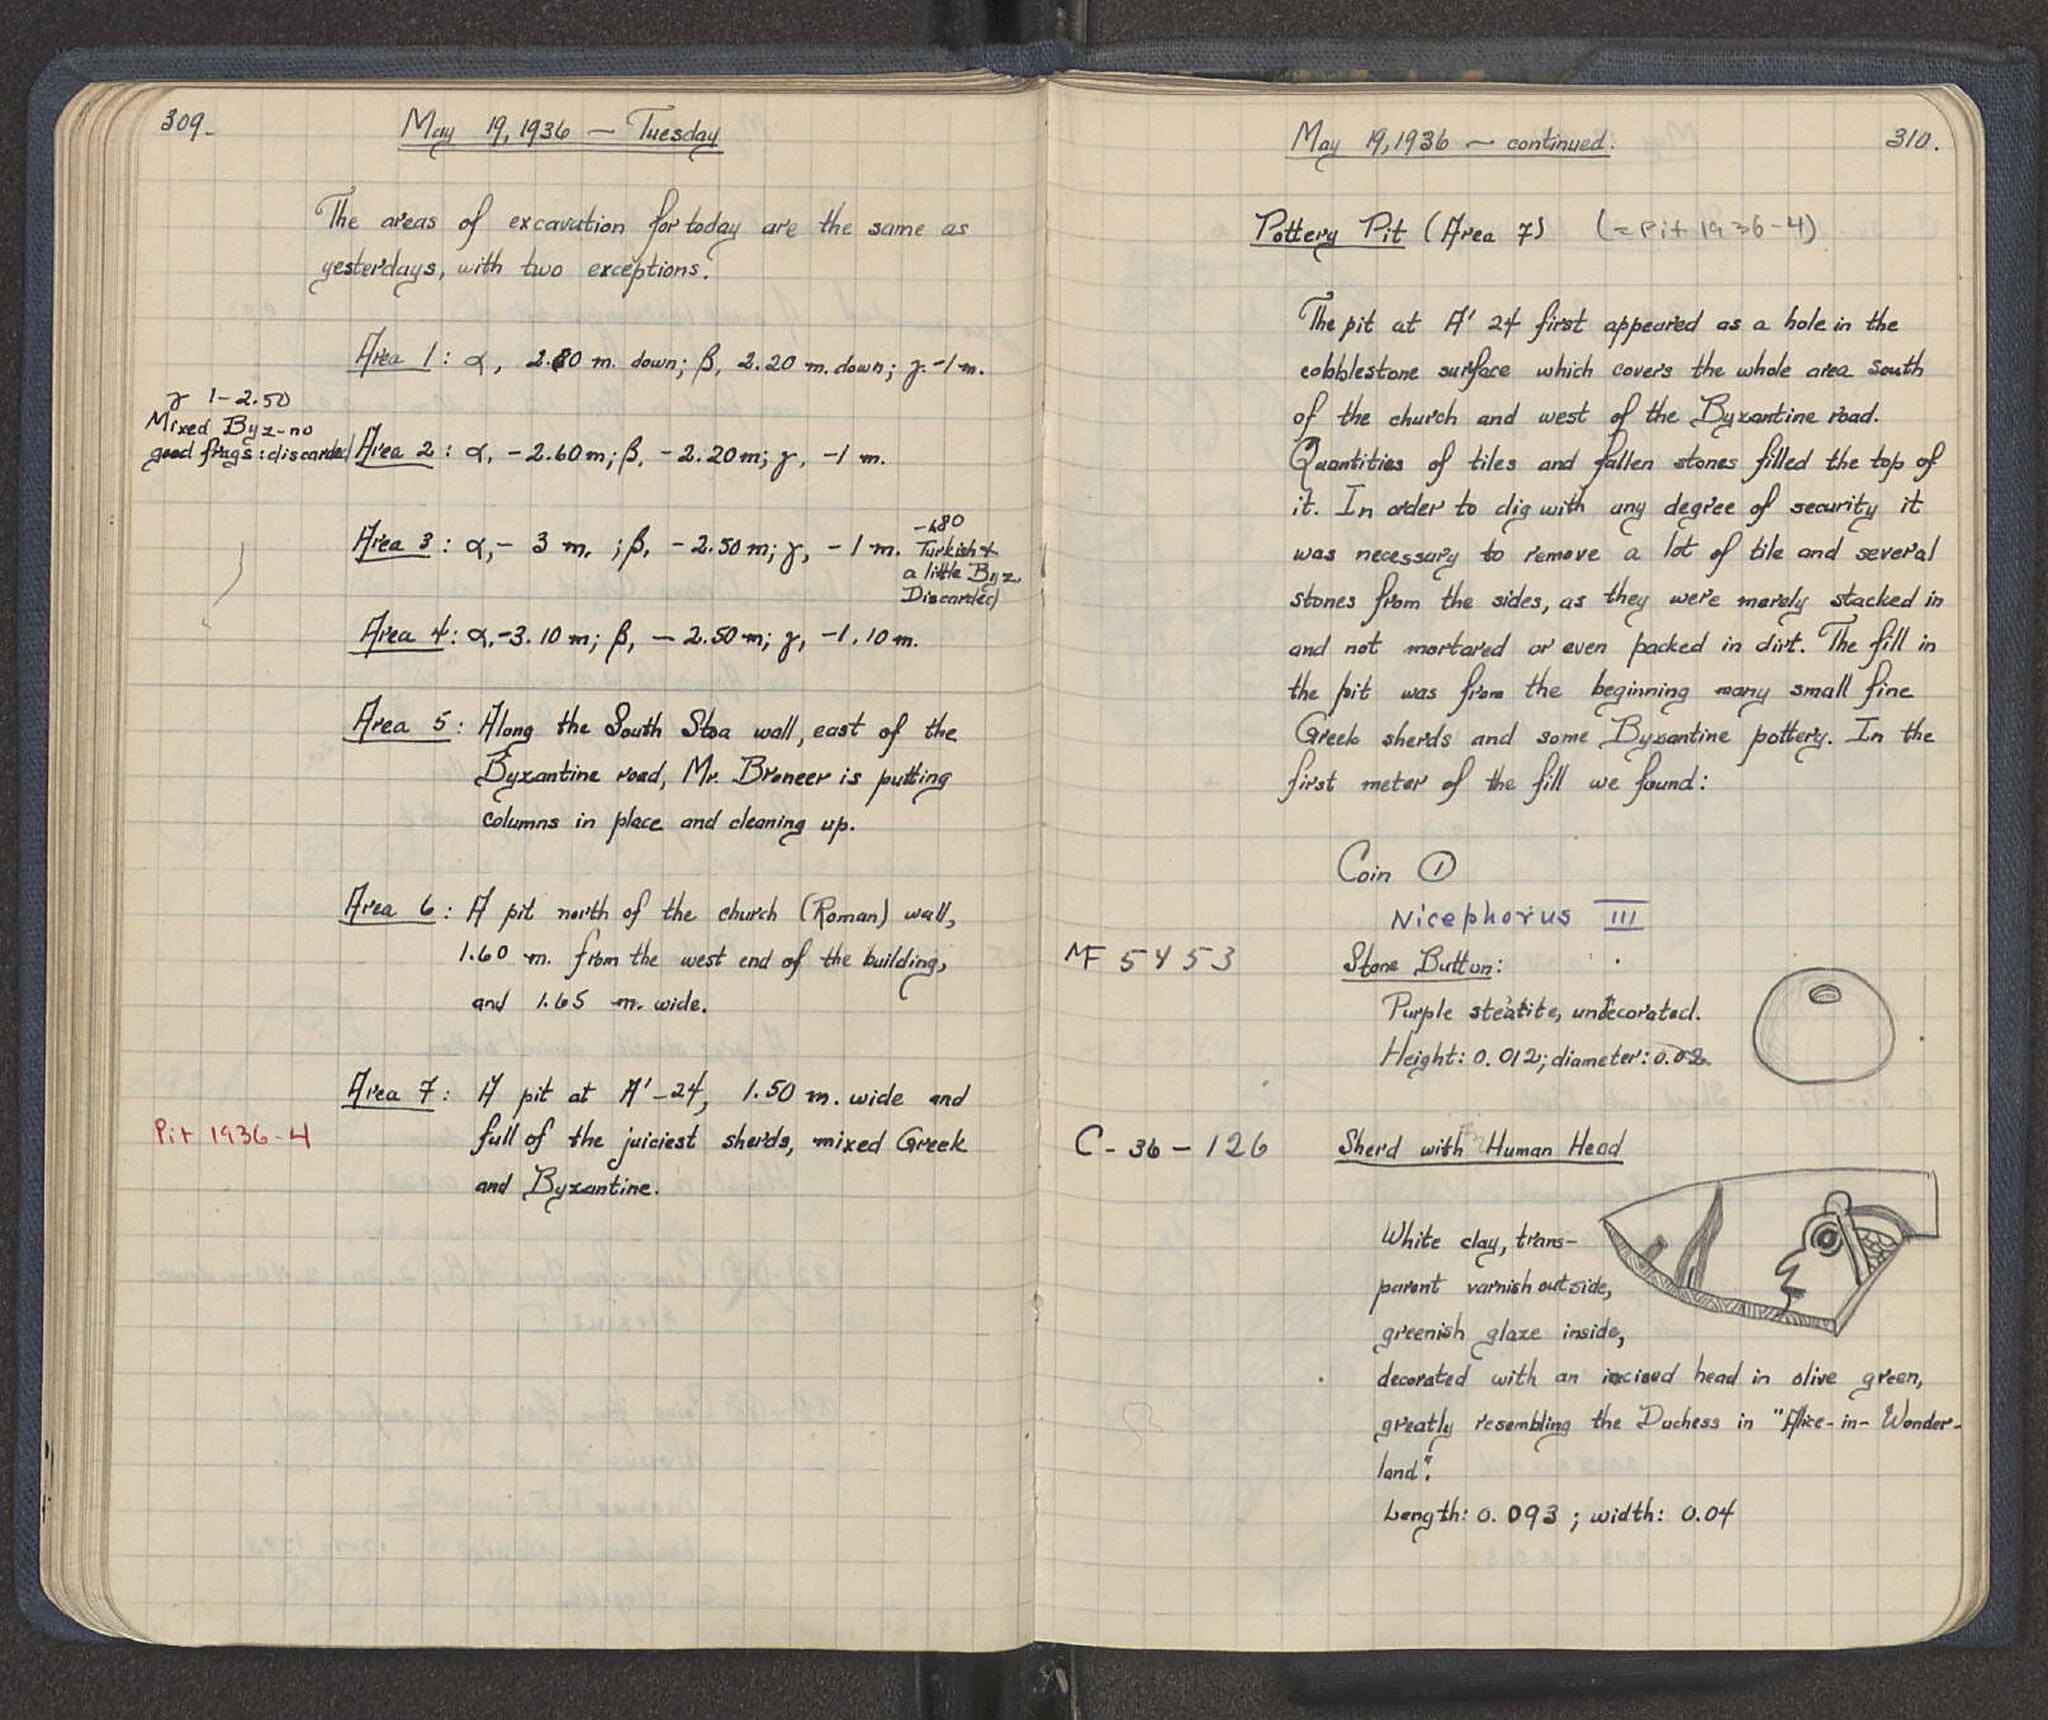 309.
May 19, 1936 — Tuesday
The areas of excavation for today are the same as
yesterdays, with two exceptions.
Area 1: α, 2.80 m. down; β, 2.20 m. down; γ. -1 m.
γ 1-2.50
Mixed Byz-no
good frags: discarded
Area 2: α, -2.60 m; β, -2.20 m; γ, -1 m.
Area 3: α, - 3 m. ; β, -2.50 m; γ, -1 m.
Turkish +
a little Byz.
Discarded
Area 4: α, -3.10 m; β, -2.50 m; γ, -1.10 m.
Area 5: Along the South Stoa wall, east of the
Byzantine road, Mr. Broneer is putting
columns in place and cleaning up.
Area 6: A pit north of the church (Roman) wall,
1.60 m. from the west end of the building,
and 1.65 m. wide.
Area 7: A pit at A' -24, 1.50 m. wide and
Pit 1936-4
full of the juiciest sherds, mixed Greek
and Byzantine.
May 19, 1936 — continued.
310.
Pottery Pit (Area 7) (= Pit 1936-4)
The pit at A' 24 first appeared as a hole in the
cobblestone surface which covers the whole area south
of the church and west of the Byzantine road.
Quantities of tiles and fallen stones filled the top of
it. In order to dig with any degree of security it
was necessary to remove a lot of tile and several
stones from the sides, as they were merely stacked in
and not mortared or even packed in dirt. The fill in
the pit was from the beginning many small fine
Greek sherds and some Byzantine pottery. In the
first meter of the fill we found:
Coin ①
Nicephorus III
MF 5453
Stone Button:
Purple steatite, undecorated.
Height: 0.012; diameter: 0.02.
C-36-126
Sherd with Human Head
White clay, trans-
parent varnish outside,
greenish glaze inside,
decorated with an incised head in olive green,
greatly resembling the Duchess in "Alice-in-Wonder-
land".
Length: 0.093 ; width: 0.04